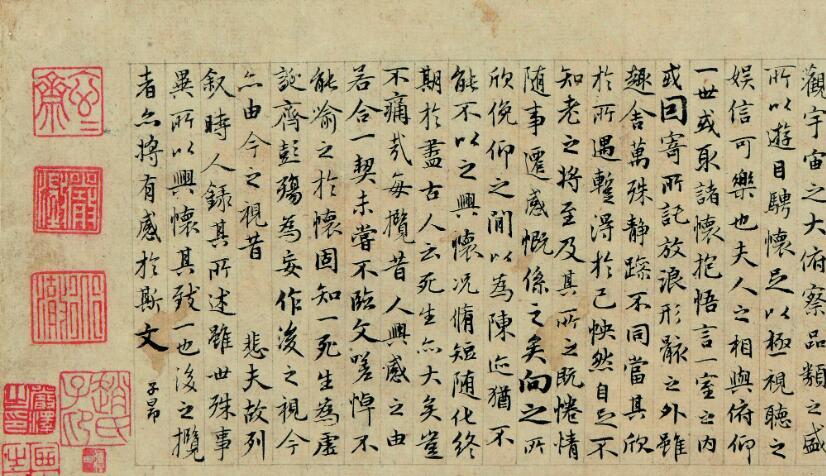 觀宇宙之大俯察品類之盛
所以遊目騁懷足以極視聽之
娛信可樂也夫人之相與俯仰
一世或取諸懷抱悟言一室之內
或因寄所託放浪形骸之外雖
趣舍萬殊靜躁不同當其欣
於所遇蹔得於己怏然自足不
知老之將至及其所之既惓情
隨事遷感慨係之矣向之所
欣俛仰之間以為陳迹猶不
能不以之興懷況脩短隨化終
期於盡古人云死生亦大矣豈
不痛哉每攬昔人興感之由
若合一契未嘗不臨文嗟悼不
能喻之於懷固知一死生為虛
誕齊彭殤為妄作後之視今
亦由今之視昔 悲夫故列
叙時人錄其所述雖世殊事
異所以興懷其致一也後之攬
者亦將有感於斯文
子昂
趙氏子昂